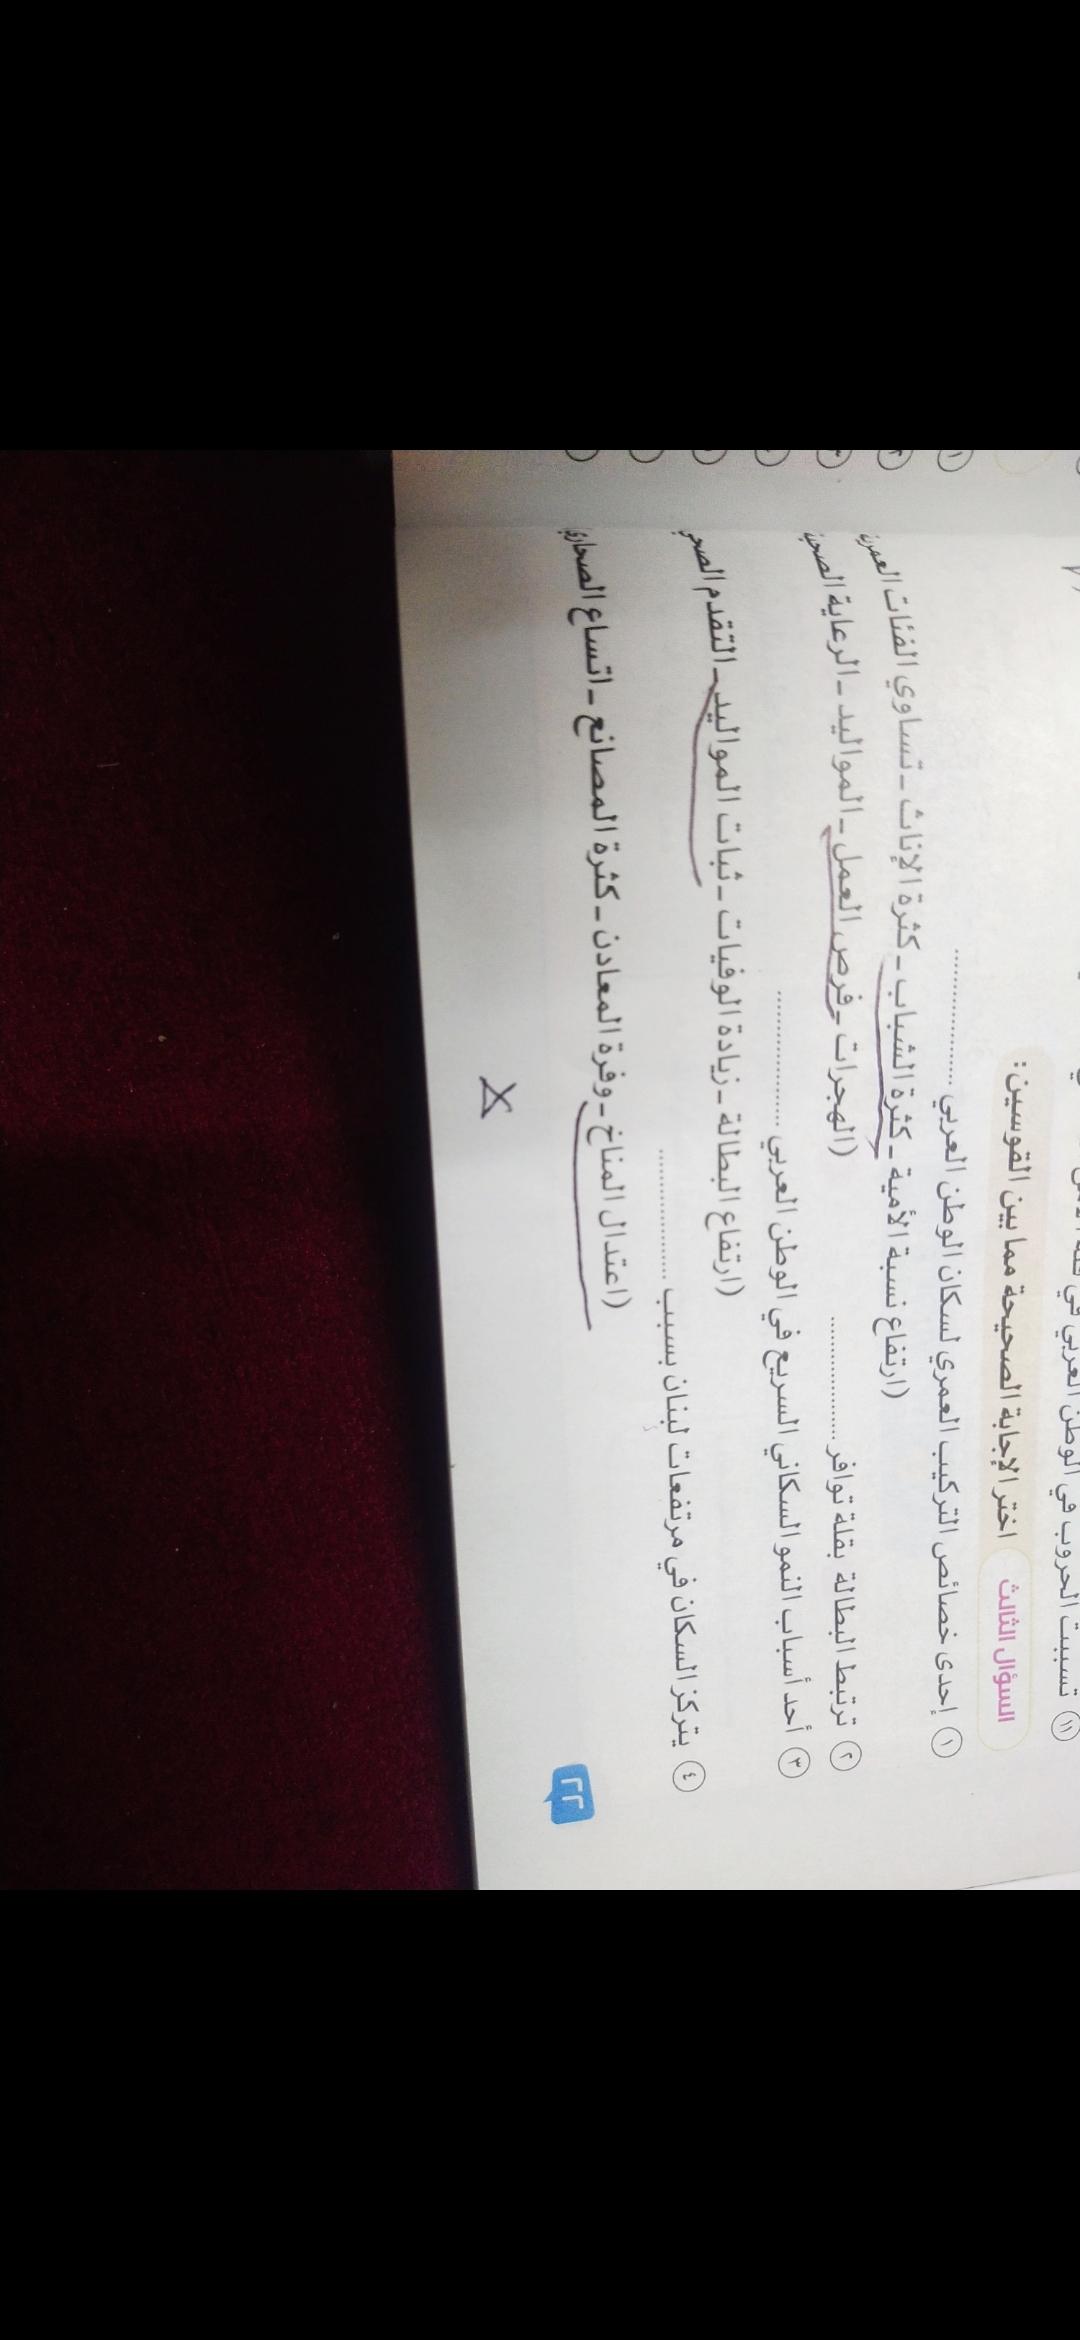 ⑪ تسببت الحروب في الوطن العربي في
السؤال الثالث اختر الإجابة الصحيحة مما بين القوسين :
① إحدى خصائص التركيب العمري لسكان الوطن العربي ..............
(ارتفاع نسبة الأمية - كثرة الشباب - كثرة الإناث - تساوي الفئات العمرية
② ترتبط البطالة بقلة توافر ..............
(الهجرات - فرص العمل - المواليد - الرعاية الصحية
③ أحد أسباب النمو السكاني السريع في الوطن العربي ..............
(ارتفاع البطالة - زيادة الوفيات - ثبات المواليد - التقدم الصحي
④ يتركز السكان في مرتفعات لبنان بسبب ..............
(اعتدال المناخ - وفرة المعادن - كثرة المصانع - اتساع الصحاري
٢٢